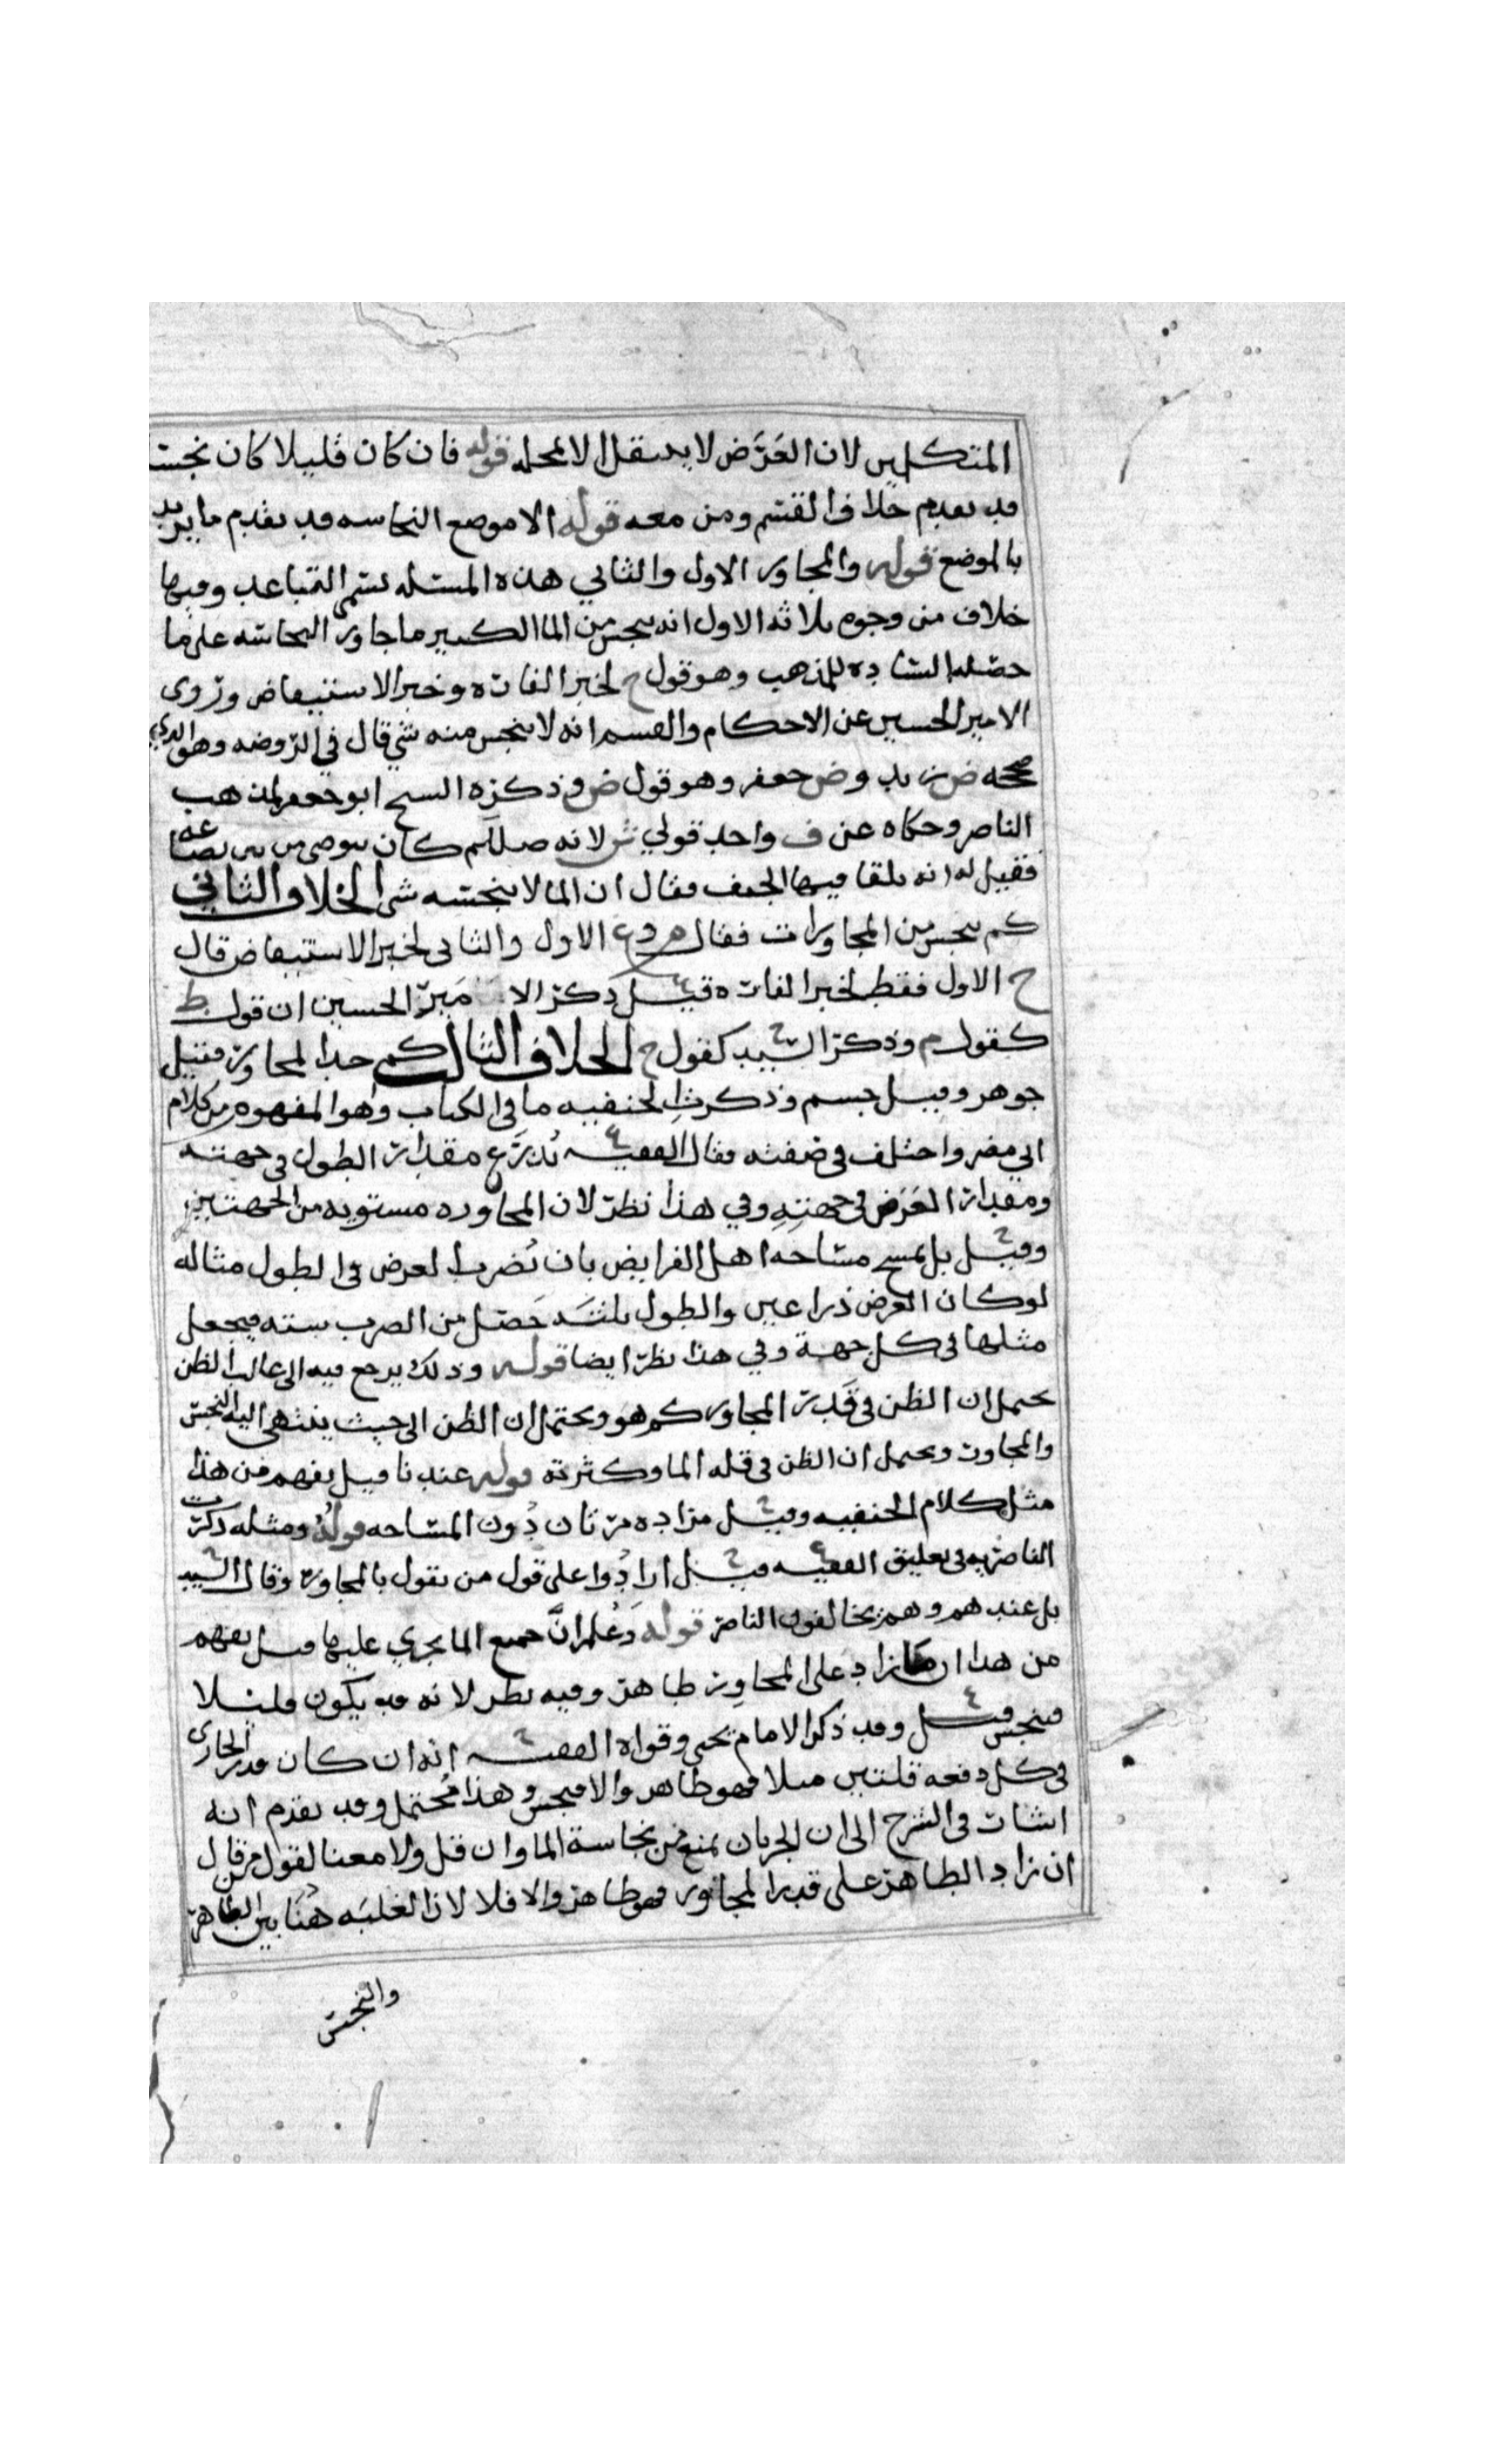 المتكلمين لان العَرَض لا ينتقل الا بمحله قوله فان كان قليلا كان نجسا
قد تقدم خلاف القسم ومن معه قوله الا موضع النجاسه قد تقدم ما يريد
بالموضع قوله والمجاور الاول والثاني هذه المسئله تسمى التباعد وفيها
خلاف من وجوه ثلاثه الاول انه ينجس من الما الكثير ما جاور النجاسه على ما
حصله الساده للمذهب وهو قول ح لخبر الفاره وخبر الاستيقاض وروى
الامير الحسين عن الاحكام والقسم انه لا ينجس منه شي قال في الروضه وهو الذي
صححه ض زيد وض جعفر وهو قول ض وذكره الشيخ ابو جعفر لمذهب
الناصر وحكاه عن ف واحد قولي ش لانه صللم كان يتوضى من بير بضاعه
فقيل له انه يلقا فيها الجيف فقال ان الما لا ينجسه شي الخلاف الثاني
كم ينجس من المجاورات فقال م وع الاول والثاني لخبر الاستيقاض قال
ح الاول فقط لخبر الفاره قيل ذكر الامير الحسين ان قول ط
كقول م وذكر السيد كقول ح الخلاف الثالث كم حد المجاور فقيل
جوهر وقيل جسم وذكرت الحنفيه ما في الكتاب وهو المفهوم من كلام
ابي مضر واختلف في صفته فقال الفقيه يُذرَع مقدار الطول في جهته
ومقدار العَرض في جهتِهِ وفي هذا نظر لان المجاوره مستويه من الجهتين
وقيل بل يمسح مساحه اهل الفرايض بان يُضرب العرض في الطول مثاله
لو كان العرض ذراعين والطول ثلثه حَصَل من الضرب سته فيجعل
مثلها في كل جهة وفي هذا نظر ايضا قوله وذلك يرجع فيه الى غالب الظن
يحتمل ان الظن في قَدر المجاور كم هو ويحتمل ان الظن الى حيث ينتهي اليه النجس
والمجاور ويحتمل ان الظن في قله الما وكثرته قوله عندنا قيل يفهم من هذا
مثل كلام الحنفيه وقيل مراده مرتان دُون المساحه قولهُ ومثله ذكرت
الناصريه في تعليق الفقيه قيل ارادُوا على قول من يقول بالمجاور وقال السيد
بل عندهم وهم يخالفون الناصر قوله وَعُلم انَّ جميع الما يجري عليها قيل يفهم
من هذا ان ما زاد على المجاوِر طاهر وفيه نظر لانه قد يكون قليلا
فينجس قيل وقد ذكر الامام يحيى وقواه الفقيه انه ان كان قدر الجاري
في كل دفعه قلتين مثلا فهو طاهر والا فنجس وهذا مُحتمل وقد تقدم انه
اشار في الشرح الى ان الجريان يمنع من نجاسة الما وان قل ولا معنا لقول من قال
ان زاد الطاهر على قدر المجاور فهو طاهر والا فلا لان الغلبَه هُنا بين الطاهر
والنجس